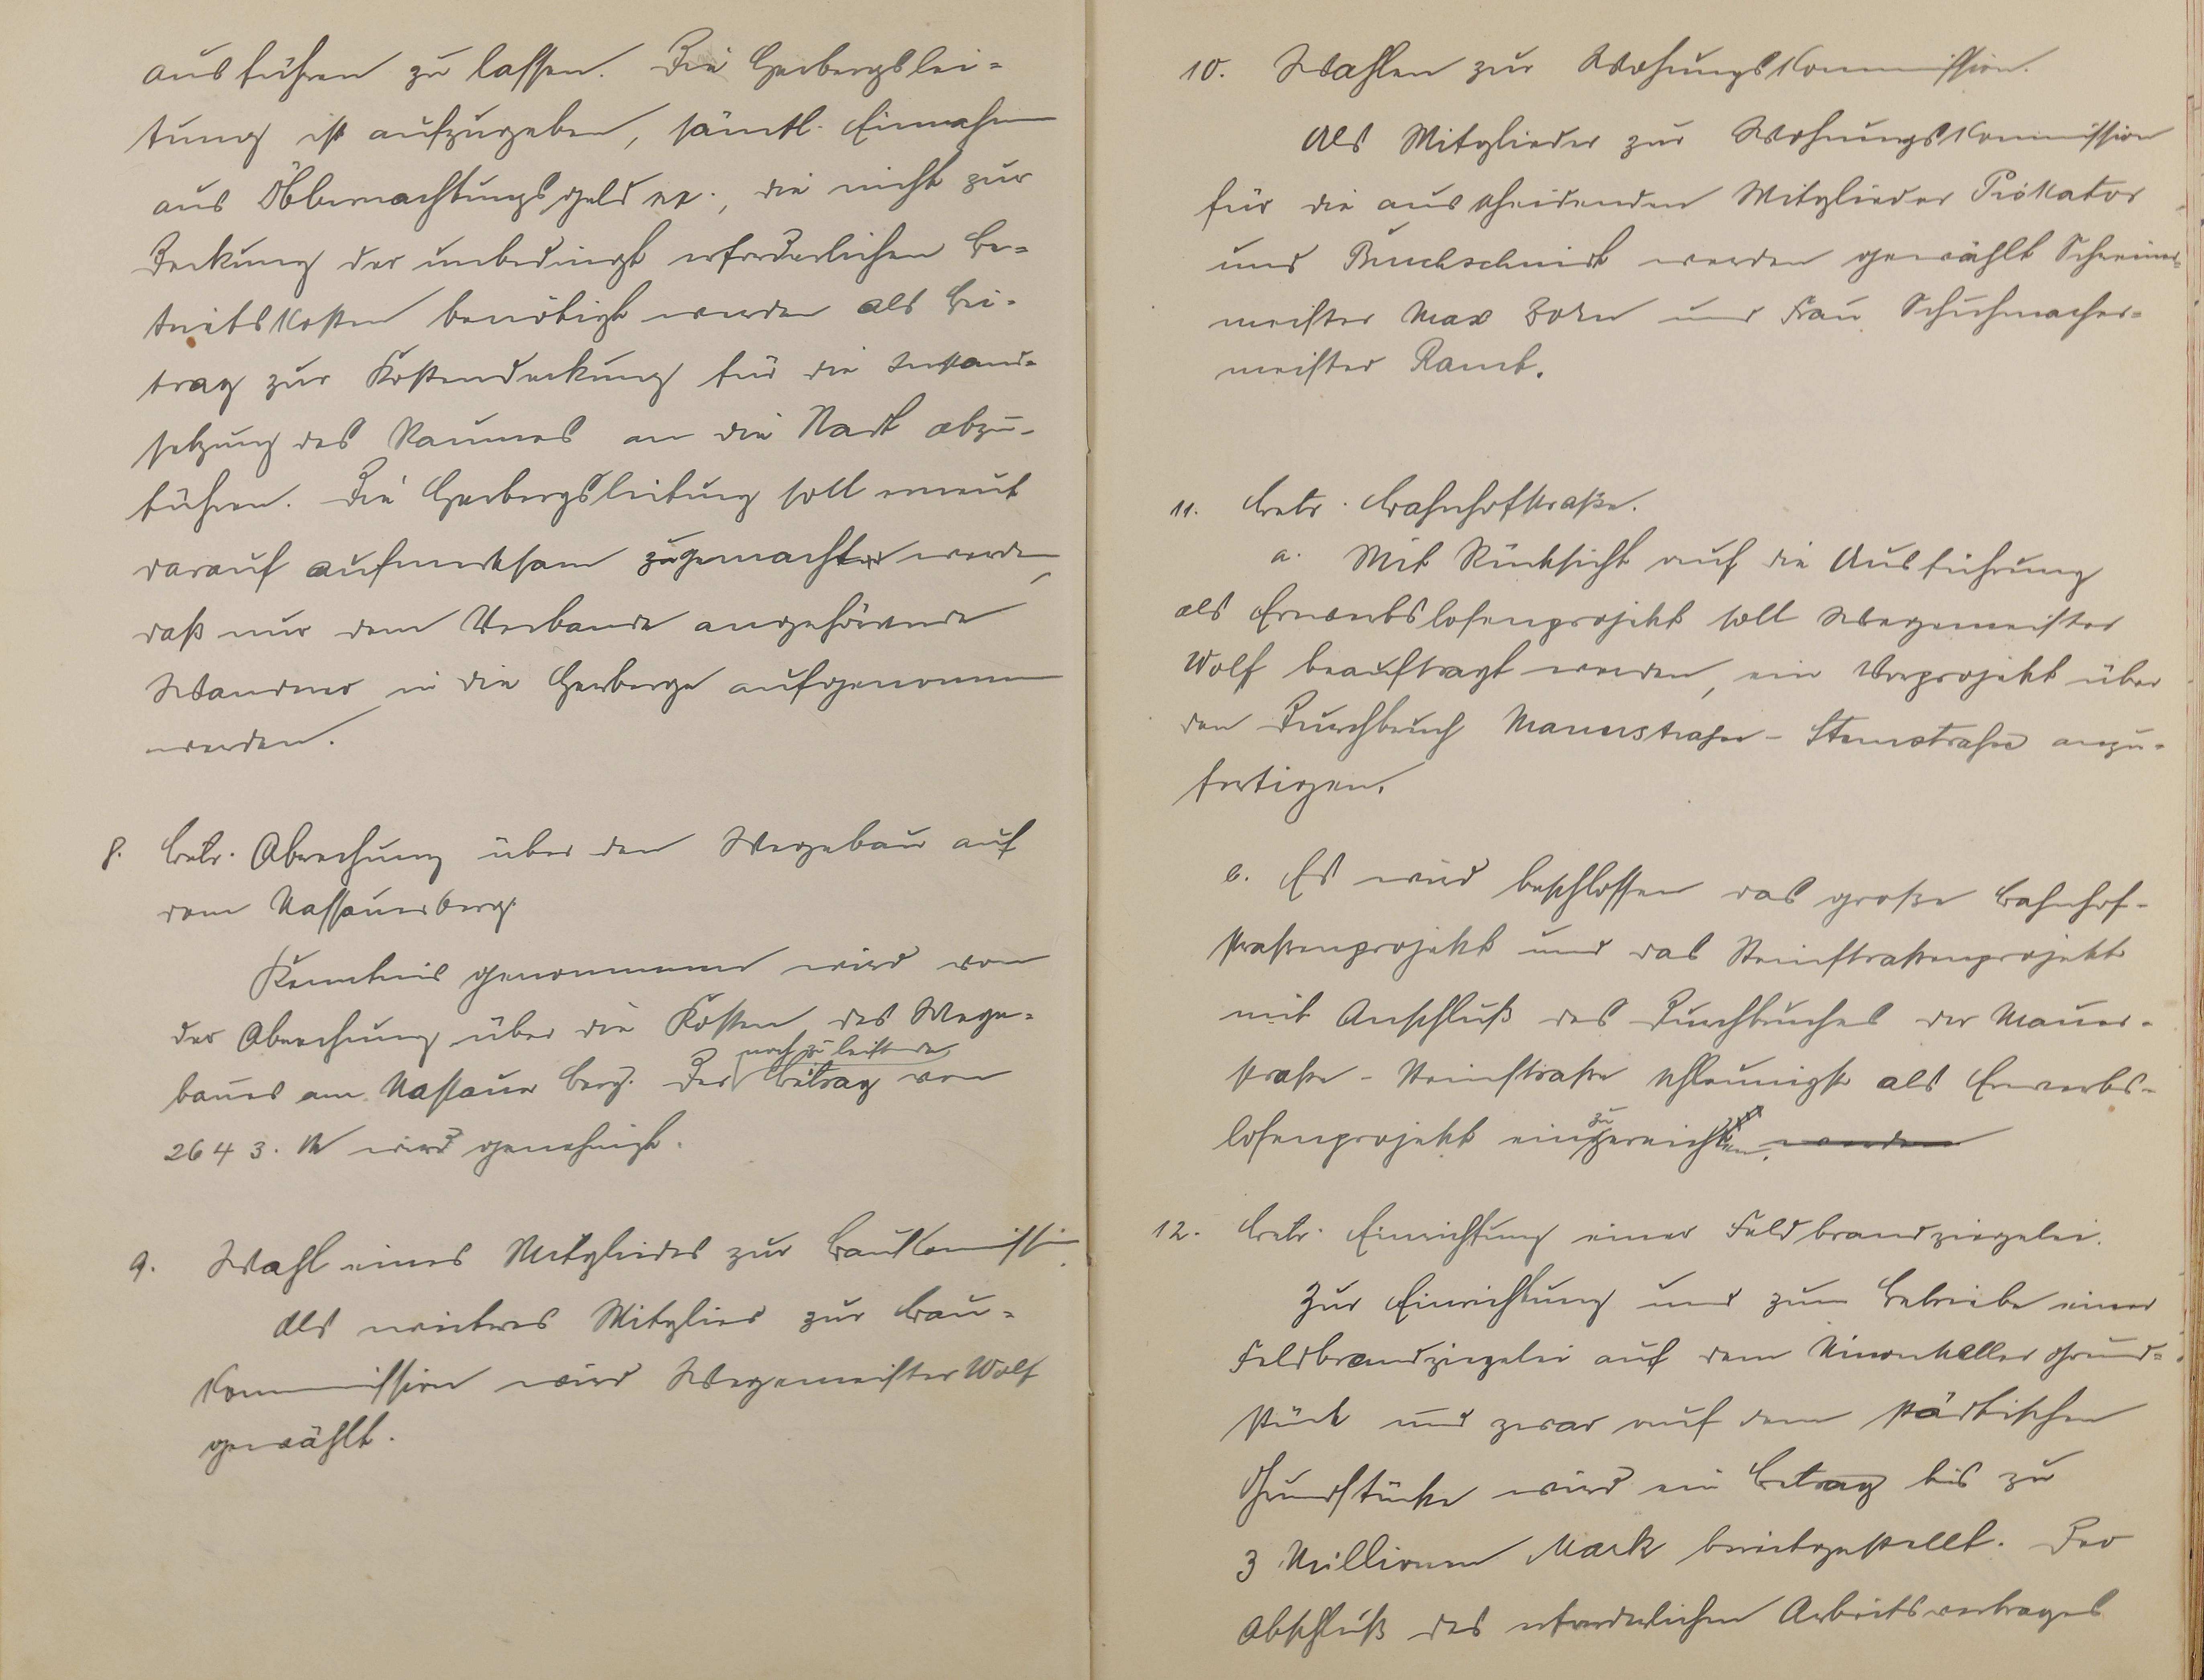 ausführen zu lassen. Die Herbergslei-
tung ist aufzugeben, sämtl. Einnahmen
aus Übernachtungsgeld etc., die nicht zur
Deckung der unbedingt erforderlichen Be-
triebskosten benötigt werden als Bei-
trag zur Kostendeckung für die Instand-
setzung des Raumes an die Stadt abzu-
führen. Die Herbergsleitung soll erneut
darauf aufmerksam gemacht werden,
daß nur dem Verbande angehörende
Wanderer in die Herberge aufgenommen
werden.
8. Betr. Abrechung über den Wegebau auf
dem Nassauerberg.
Kenntnis genommen wird von
der Abrechung über die Kosten des Wege-
baues am Nassauer Berg. Der noch zu leistende Betrag von
2643. M wird genehmigt.
9. Wahl eines Mitgliedes zur Baukommission.
Als weiteres Mitglied zur Bau-
kommission wird Wegemeister Wolf
gewählt.
10. Wahlen zur Wohungskommission.
Als Mitglieder zur Wohnungskommission
für die ausscheidenden Mitglieder
und werden gewählt Schreiner-
meister Max Born und Frau Schuhmacher-
meister
11. Betr. Bahnhofstraße.
a. Mit Rücksicht auf die Ausführung
als Erwerbslosenprojekt soll Wegemeister
Wolf beauftragt werden, ein Vorprojekt über
den Durchbruch Mauerstraße - Steinstraße anzu-
fertigen.
b. Es wird beschlossen das große Bahnhof-
straßenprojekt und das Steinstraßenprojekt
mit Anschluß des Durchbruches der Mauer-
straße - Steinstraße schleunigst als Erwerbs-
losenprojekt einzureichen. werden
12. Betr. Einrichtung einer Feldbrandziegelei.
Zur Einrichtung und zum Betriebe einer
Feldbrandziegelei auf dem Grund-
stück und zwar auf dem städtischen
Grundstücke wird ein Betrag bis zu
3 Millionen Mark bereitgestellt. Der
Abschluß des erforderlichen Arbeitsvertrages